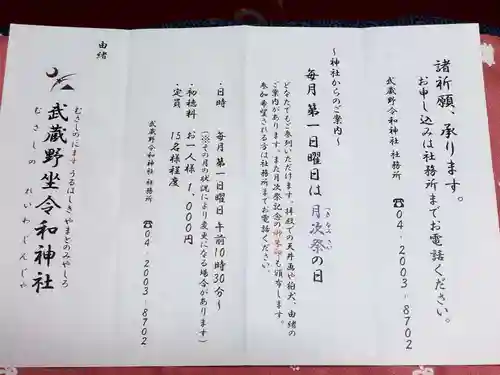 諸祈願、承ります。
お申し込みは社務所までお電話ください。
武蔵野令和神社 社務所
☎04-2003-8702
~神社からのご案内~
毎月 第一日曜日は 月次祭の日
つきなみさい
どなたでもご参列いただけます。拝殿での天井画や狛犬、由緒の
ご案内があります。また月次祭記念の御朱印も頒布します。
参加希望される方は社務所までお電話ください。
・日時 毎月 第一日曜日 午前10時30分~
(※その月の状況により変更になる場合があります)
・初穂料 お一人様 1,000円
・定員 15名様程度
武蔵野令和神社 社務所
☎04-2003-8702
由緒
むさしのにます うるはしき やまとのみやしろ
武蔵野坐令和神社
むさしの れいわじんじゃ